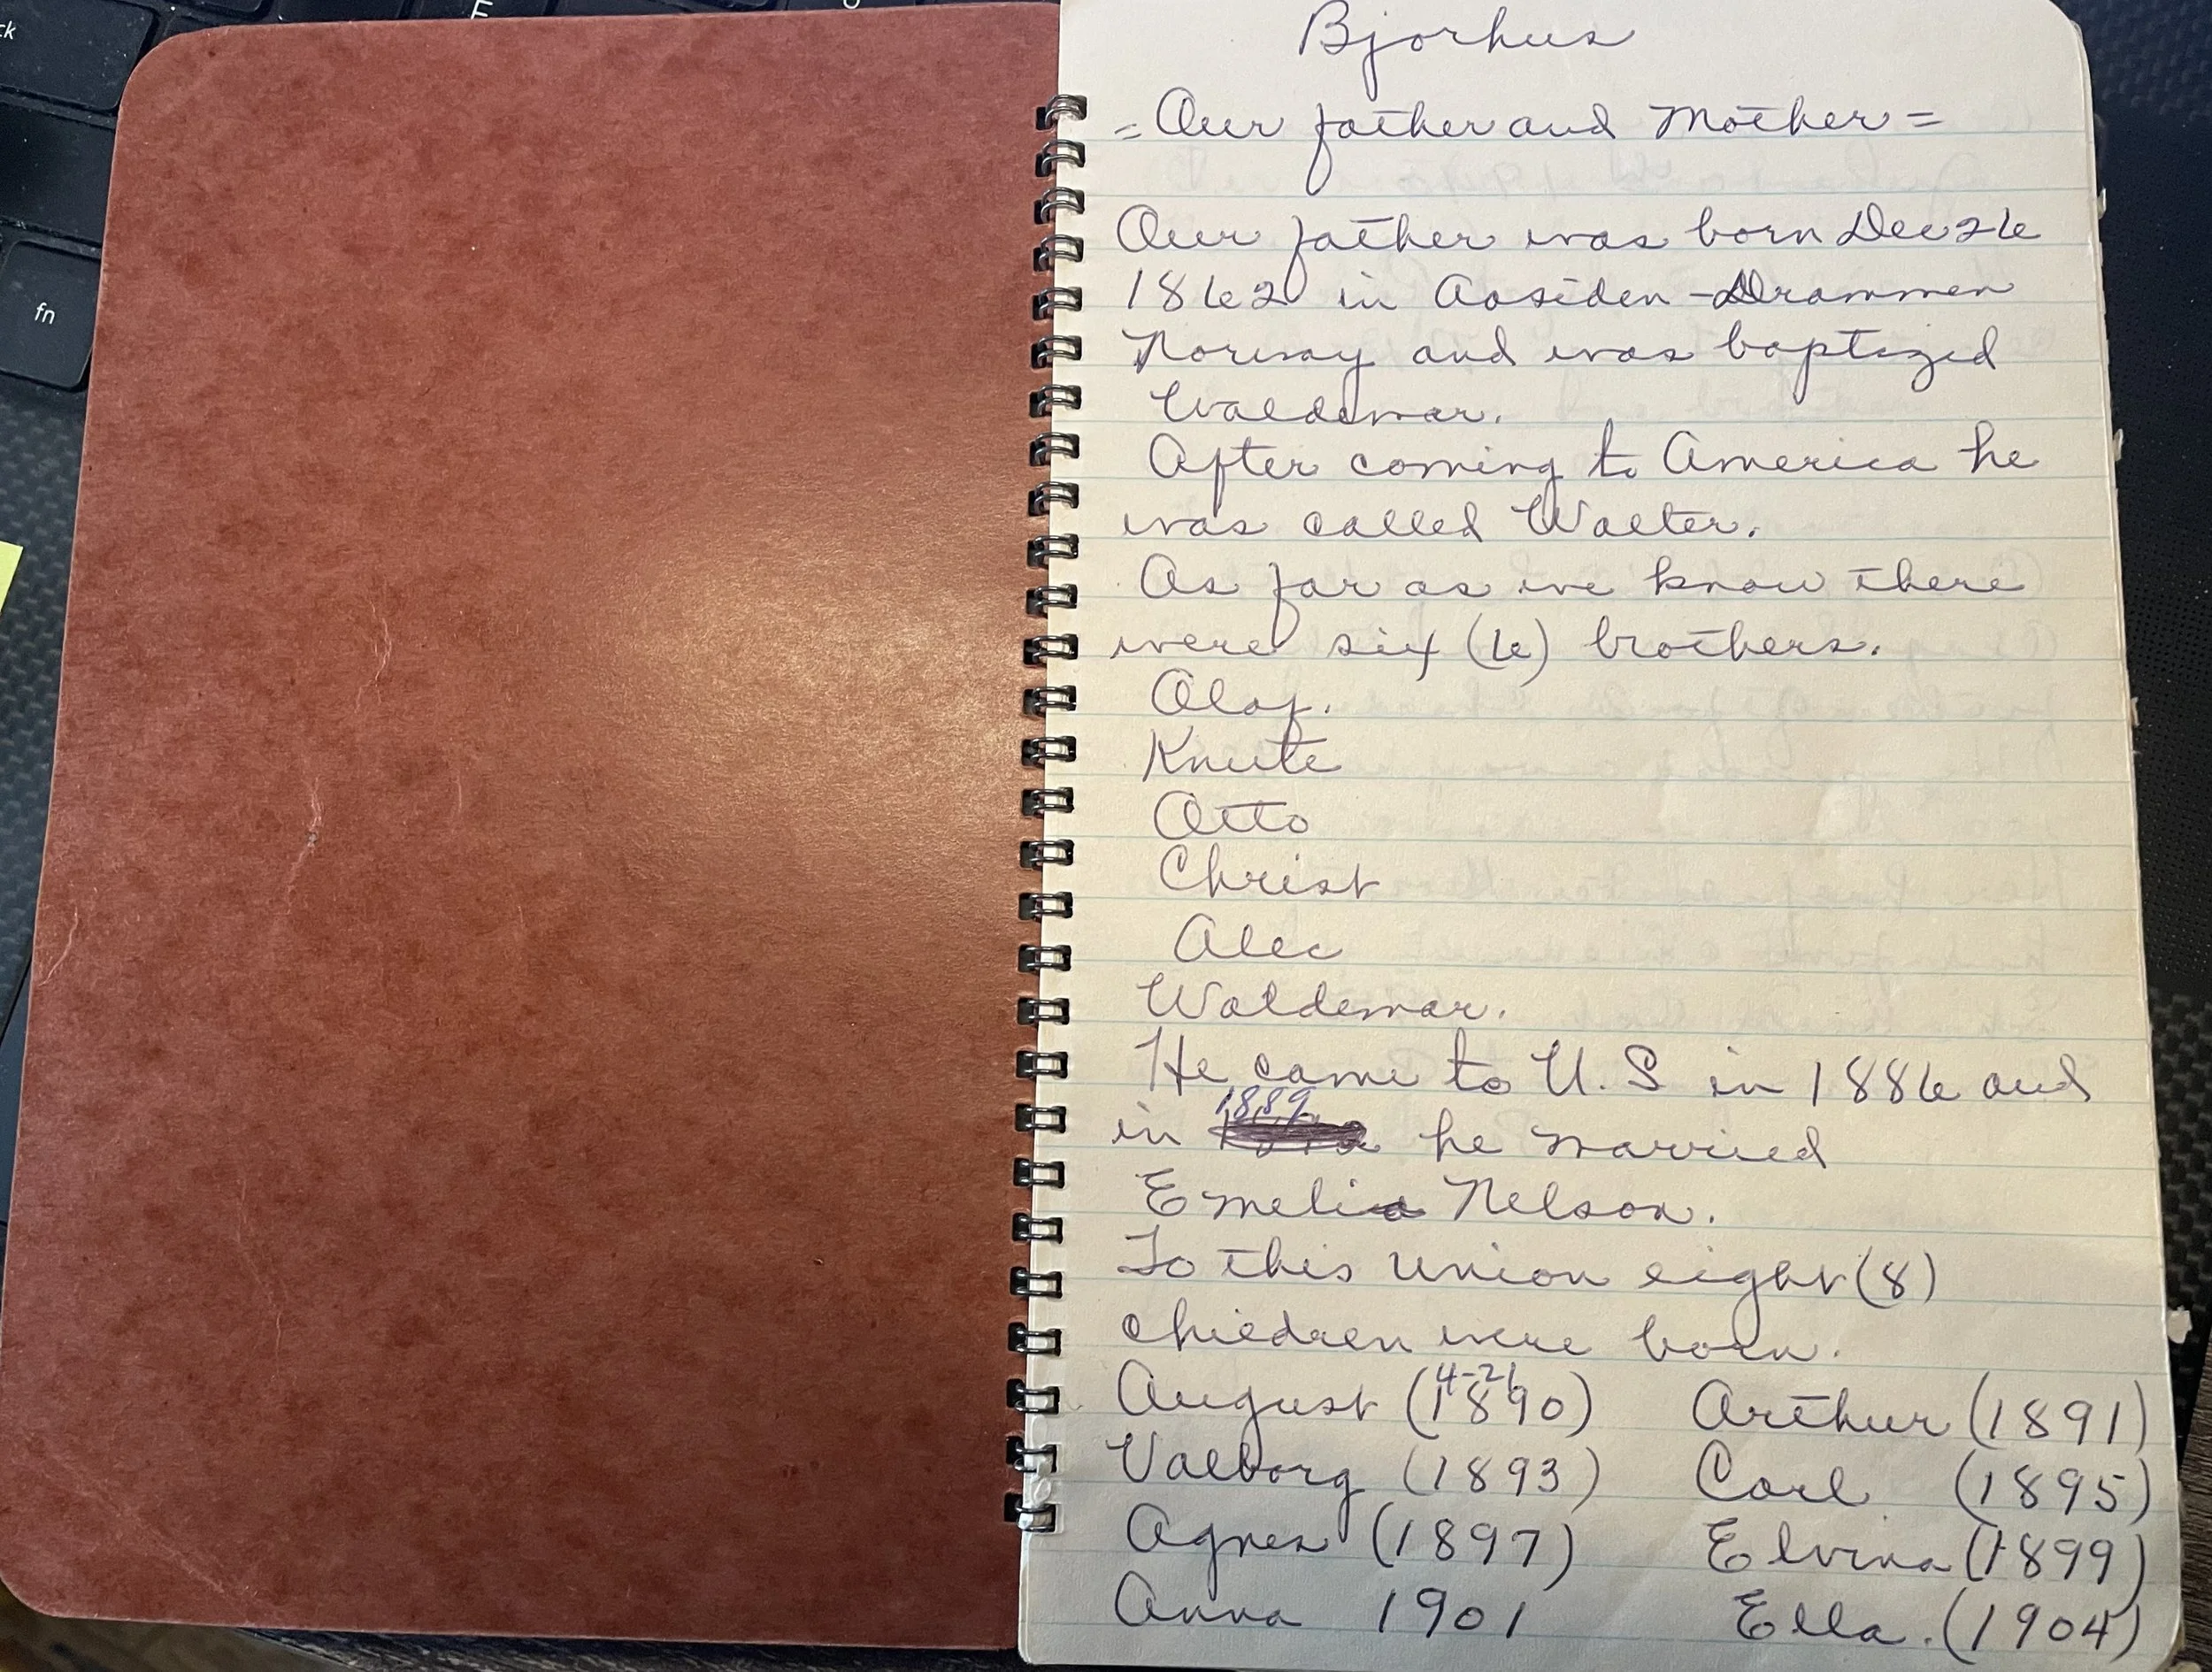 Bjorhus
= Our father and Mother =
Our father was born Dec 26
1862 in Aosiden - Drammen
Norway and was baptized
Waldemar.
After coming to America he
was called Walter.
As far as we know there
were six (6) brothers.
Olaf.
Knute
Otto
Christ
Alec
Waldemar.
He came to U.S in 1886 and
1889
in he married
Emelia Nelson.
To this union eight (8)
children were born.
4-21
August (1890) Arthur (1891)
Valborg (1893) Carl (1895)
Agnes (1897) Elvina (1899)
Anna 1901 Ella. (1904)
fn
E